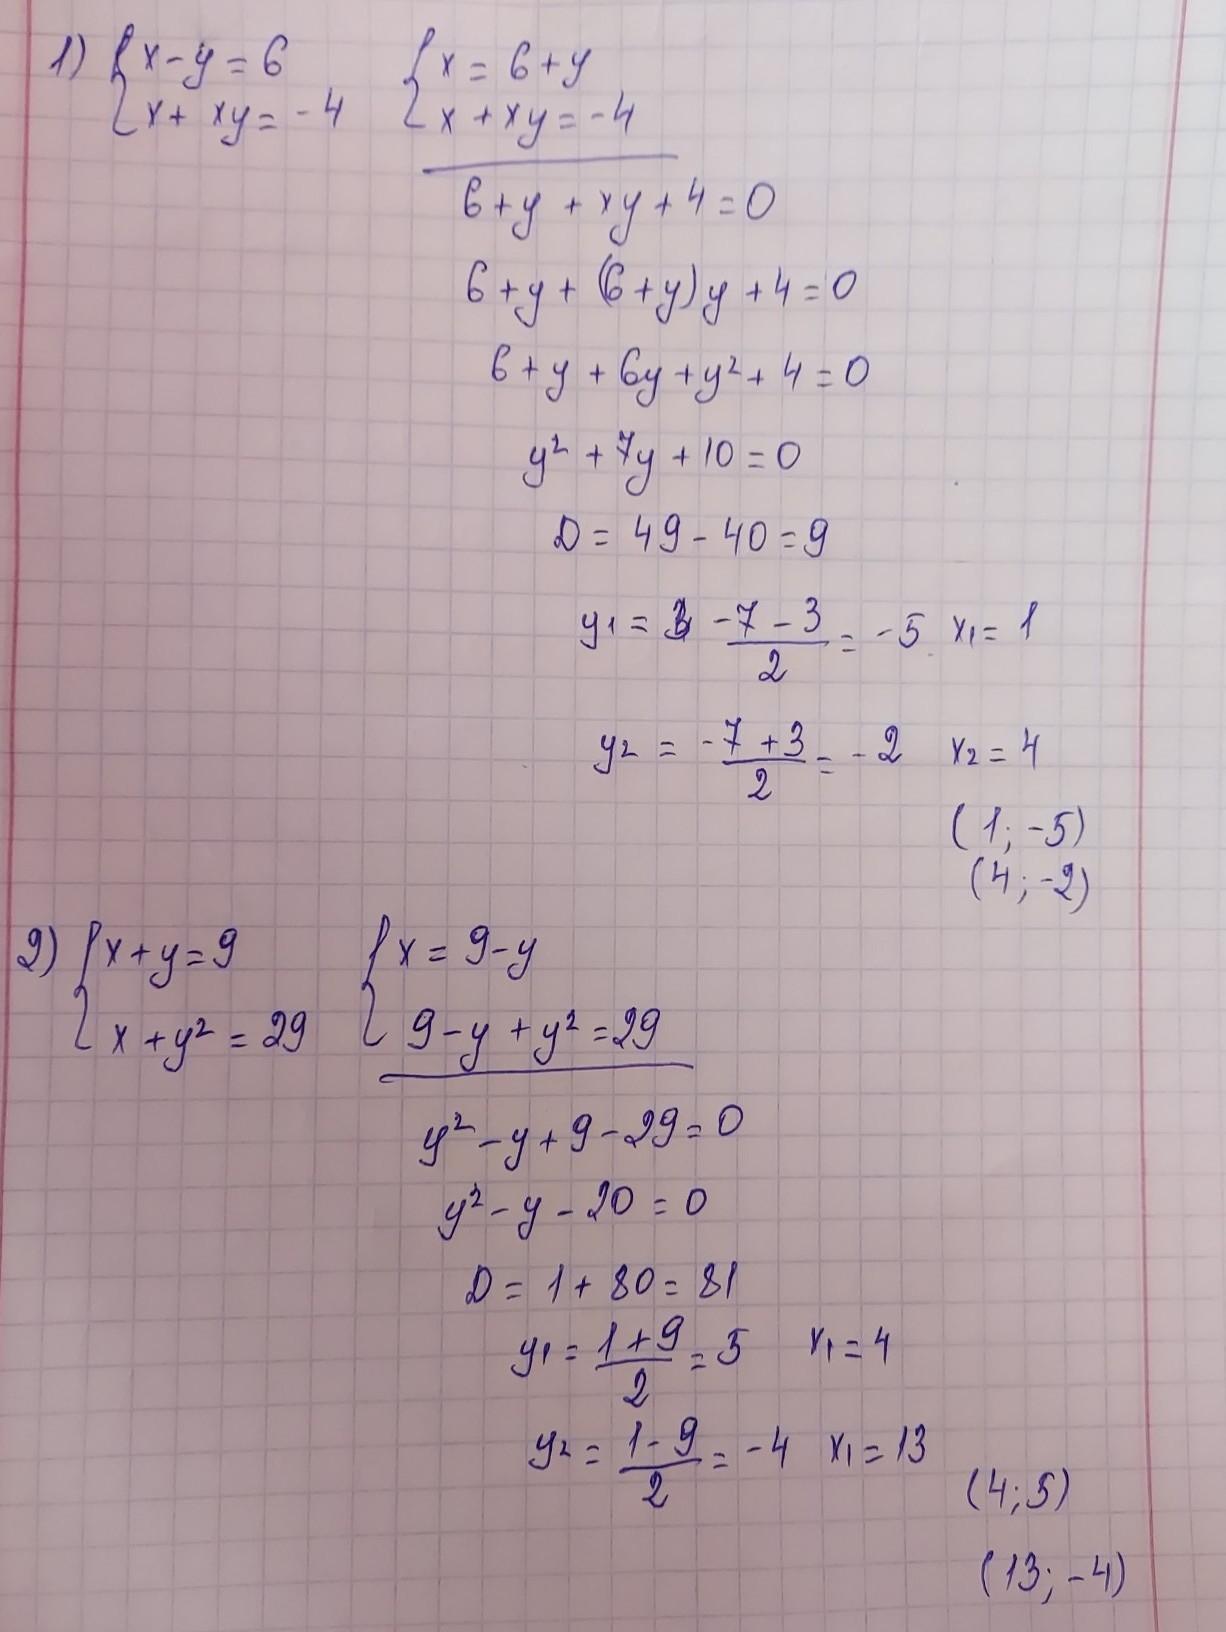 1) { x - y = 6    { x = 6 + y
x + xy = -4    x + xy = -4
6 + y + xy + 4 = 0
6 + y + (6 + y) y + 4 = 0
6 + y + 6y + y² + 4 = 0
y² + 7y + 10 = 0
D = 49 - 40 = 9
y₁ = (-7 - 3)/2 = -5  x₁ = 1
y₂ = (-7 + 3)/2 = -2  x₂ = 4
(1; -5)
(4; -2)
2) { x + y = 9    { x = 9 - y
x + y² = 29    9 - y + y² = 29
y² - y + 9 - 29 = 0
y² - y - 20 = 0
D = 1 + 80 = 81
y₁ = (1 + 9)/2 = 5  x₁ = 4
y₂ = (1 - 9)/2 = -4  x₁ = 13
(4; 5)
(13; -4)